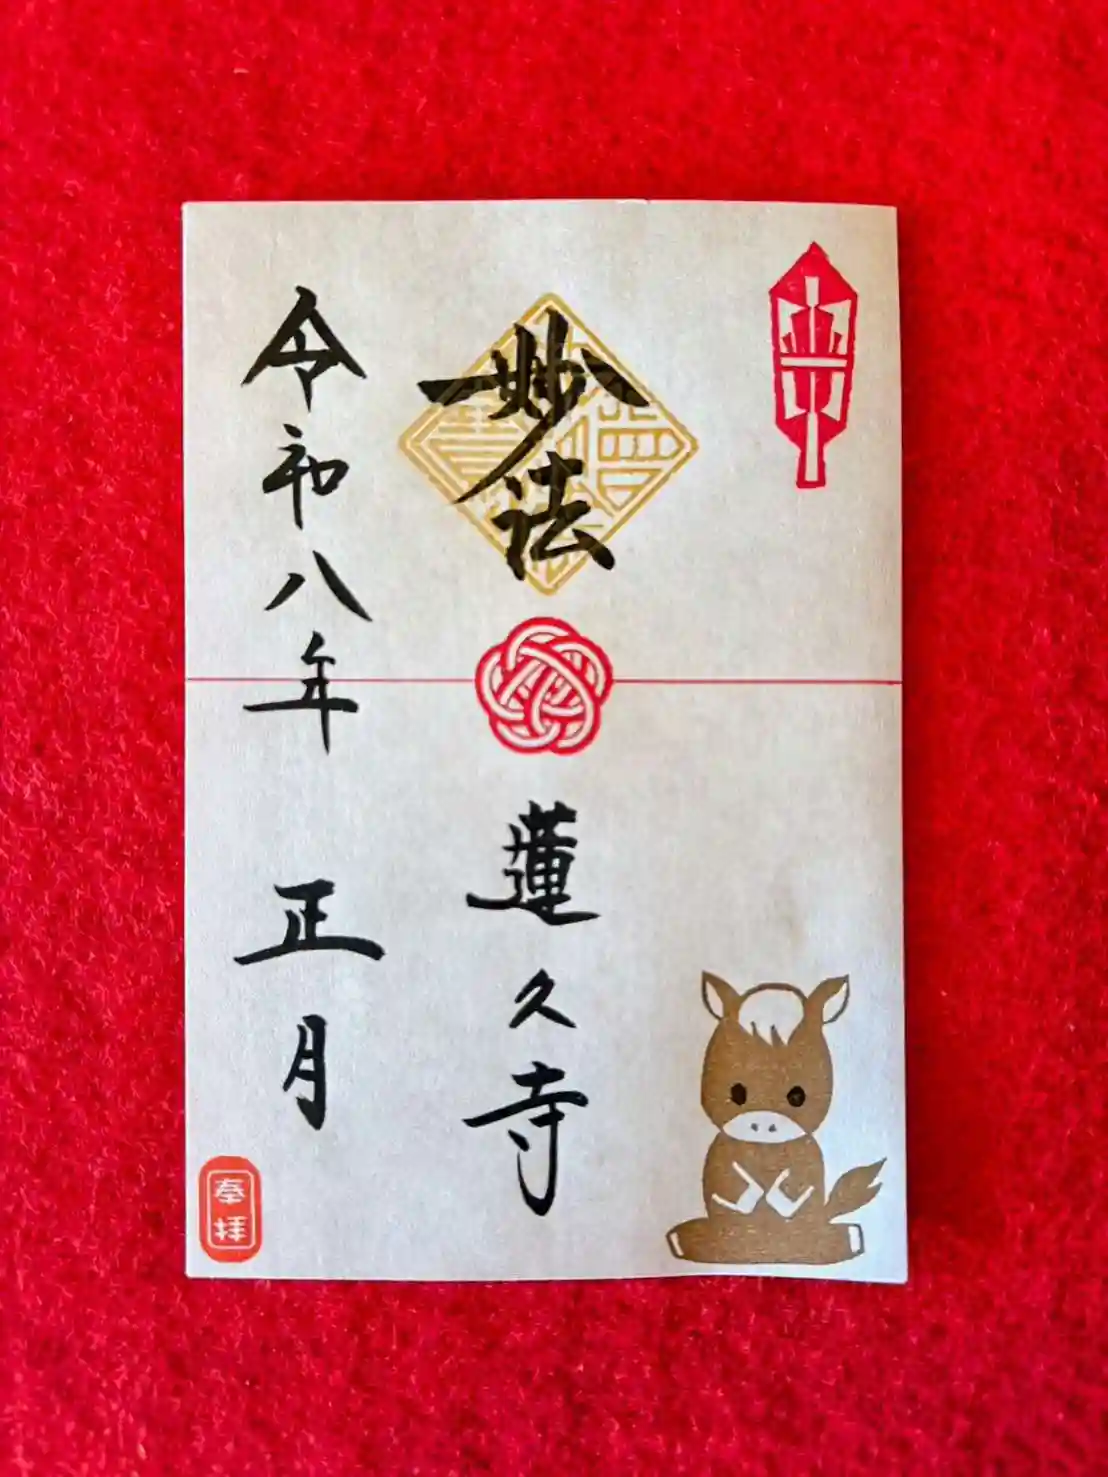 妙法
蓮久寺
令和八年 正月
奉拝